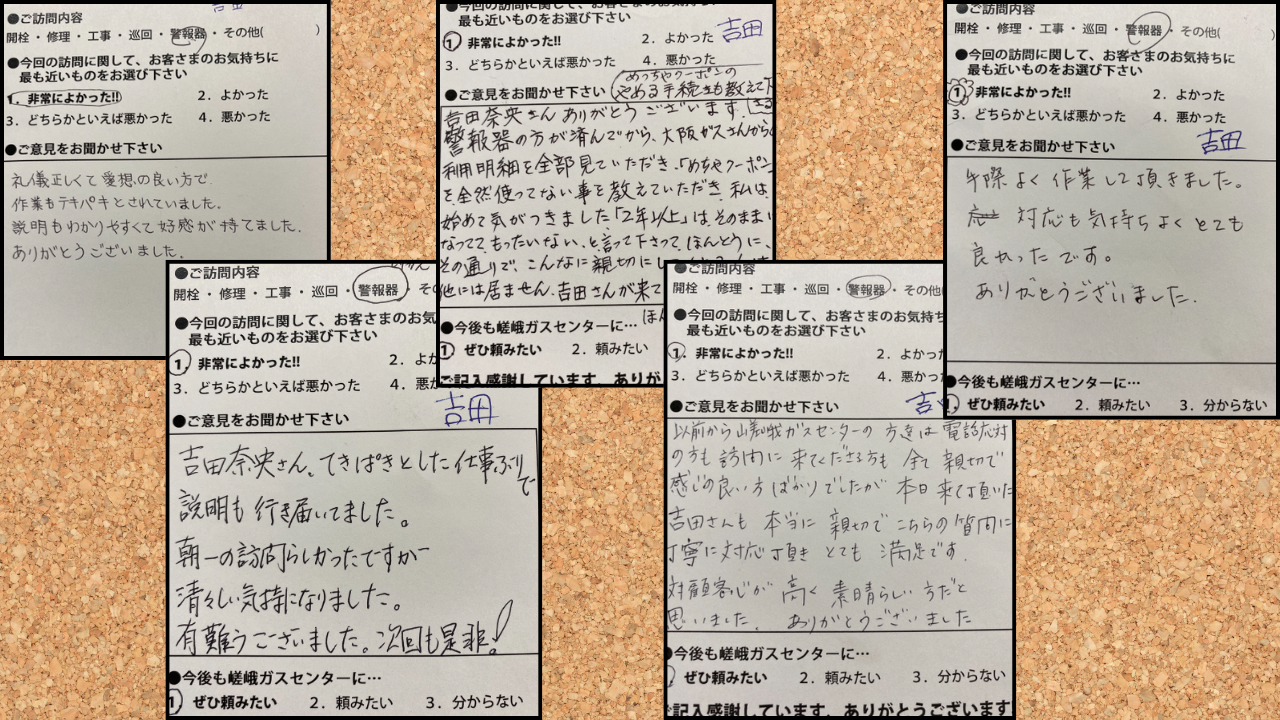 吉田
●ご訪問内容
開栓 ・ 修理 ・ 工事 ・ 巡回 ・ 警報器 ・ その他( )
●今回の訪問に関して、お客さまのお気持ちに
最も近いものをお選び下さい
1. 非常によかった!! 2. よかった
3. どちらかといえば悪かった 4. 悪かった
●ご意見をお聞かせ下さい
礼儀正しくて愛想の良い方で
作業もテキパキとされていました。
説明もわかりやすくて好感が持てました。
ありがとうございました。
●今回の訪問に関して、お客さまのお気持ち
最も近いものをお選び下さい
1. 非常によかった!! 2. よかった 吉田
3. どちらかといえば悪かった 4. 悪かった
めっちゃクーポンの
●ご意見をお聞かせ下さい やめる手続きも教えて下
さる
吉田奈央さんありがとうございます。
警報器の方が済んでから、大阪ガスさんから
利用明細を全部見ていただき、「めちゃクーポン
を全然使ってない事を教えていただき、私は、
始めて気がつきました「2年以上」は、そのまま
なってて、もったいない、と言って下さって、ほんとうに、
その通りで、こんなに親切に
他には居ません。吉田さんが来て
●今後も嵯峨ガスセンターに…
1. ぜひ頼みたい 2. 頼みたい
ご記入感謝しています。ありが
●ご訪問内容
開栓 ・ 修理 ・ 工事 ・ 巡回 ・ 警報器 ・ その他( )
●今回の訪問に関して、お客さまのお気持ちに
最も近いものをお選び下さい
1. 非常によかった!! 2. よかった
3. どちらかといえば悪かった 4. 悪かった
吉田
●ご意見をお聞かせ下さい
手際よく作業して頂きました。
対応も気持ちよくとても
良かったです。
ありがとうございました。
●今後も嵯峨ガスセンターに…
1. ぜひ頼みたい 2. 頼みたい 3. 分からない
●ご訪問内容
開栓 ・ 修理 ・ 工事 ・ 巡回 ・ 警報器 ・ その
●今回の訪問に関して、お客さまのお気
最も近いものをお選び下さい
1. 非常によかった!! 2. よか
3. どちらかといえば悪かった 4. 悪
吉田
●ご意見をお聞かせ下さい
吉田奈央さん、てきぱきとした仕事ぶりで
説明も行き届いてました。
朝一の訪問らしかったですがー
清々しい気持になりました。
有難うございました。次回も是非!
●今後も嵯峨ガスセンターに…
1. ぜひ頼みたい 2. 頼みたい 3. 分からない
●ご訪問内容
開栓 ・ 修理 ・ 工事 ・ 巡回 ・ 警報器 ・ その他(
●今回の訪問に関して、お客さまのお気持ち
最も近いものをお選び下さい
1. 非常によかった!! 2. よかっ
3. どちらかといえば悪かった 4. 悪かっ
●ご意見をお聞かせ下さい 吉
以前から嵯峨ガスセンターの方達は電話応対
の方も訪問に来てくださる方も全て親切で
感じの良い方ばかりでしたが本日来て頂いた
吉田さんも本当に親切でこちらの質問に
丁寧に対応頂きとても満足です。
対顧客心が高く素晴らしい方だと
思いました。ありがとうございました
●今後も嵯峨ガスセンターに…
ぜひ頼みたい 2. 頼みたい 3. 分からない
記入感謝しています。ありがとうございます